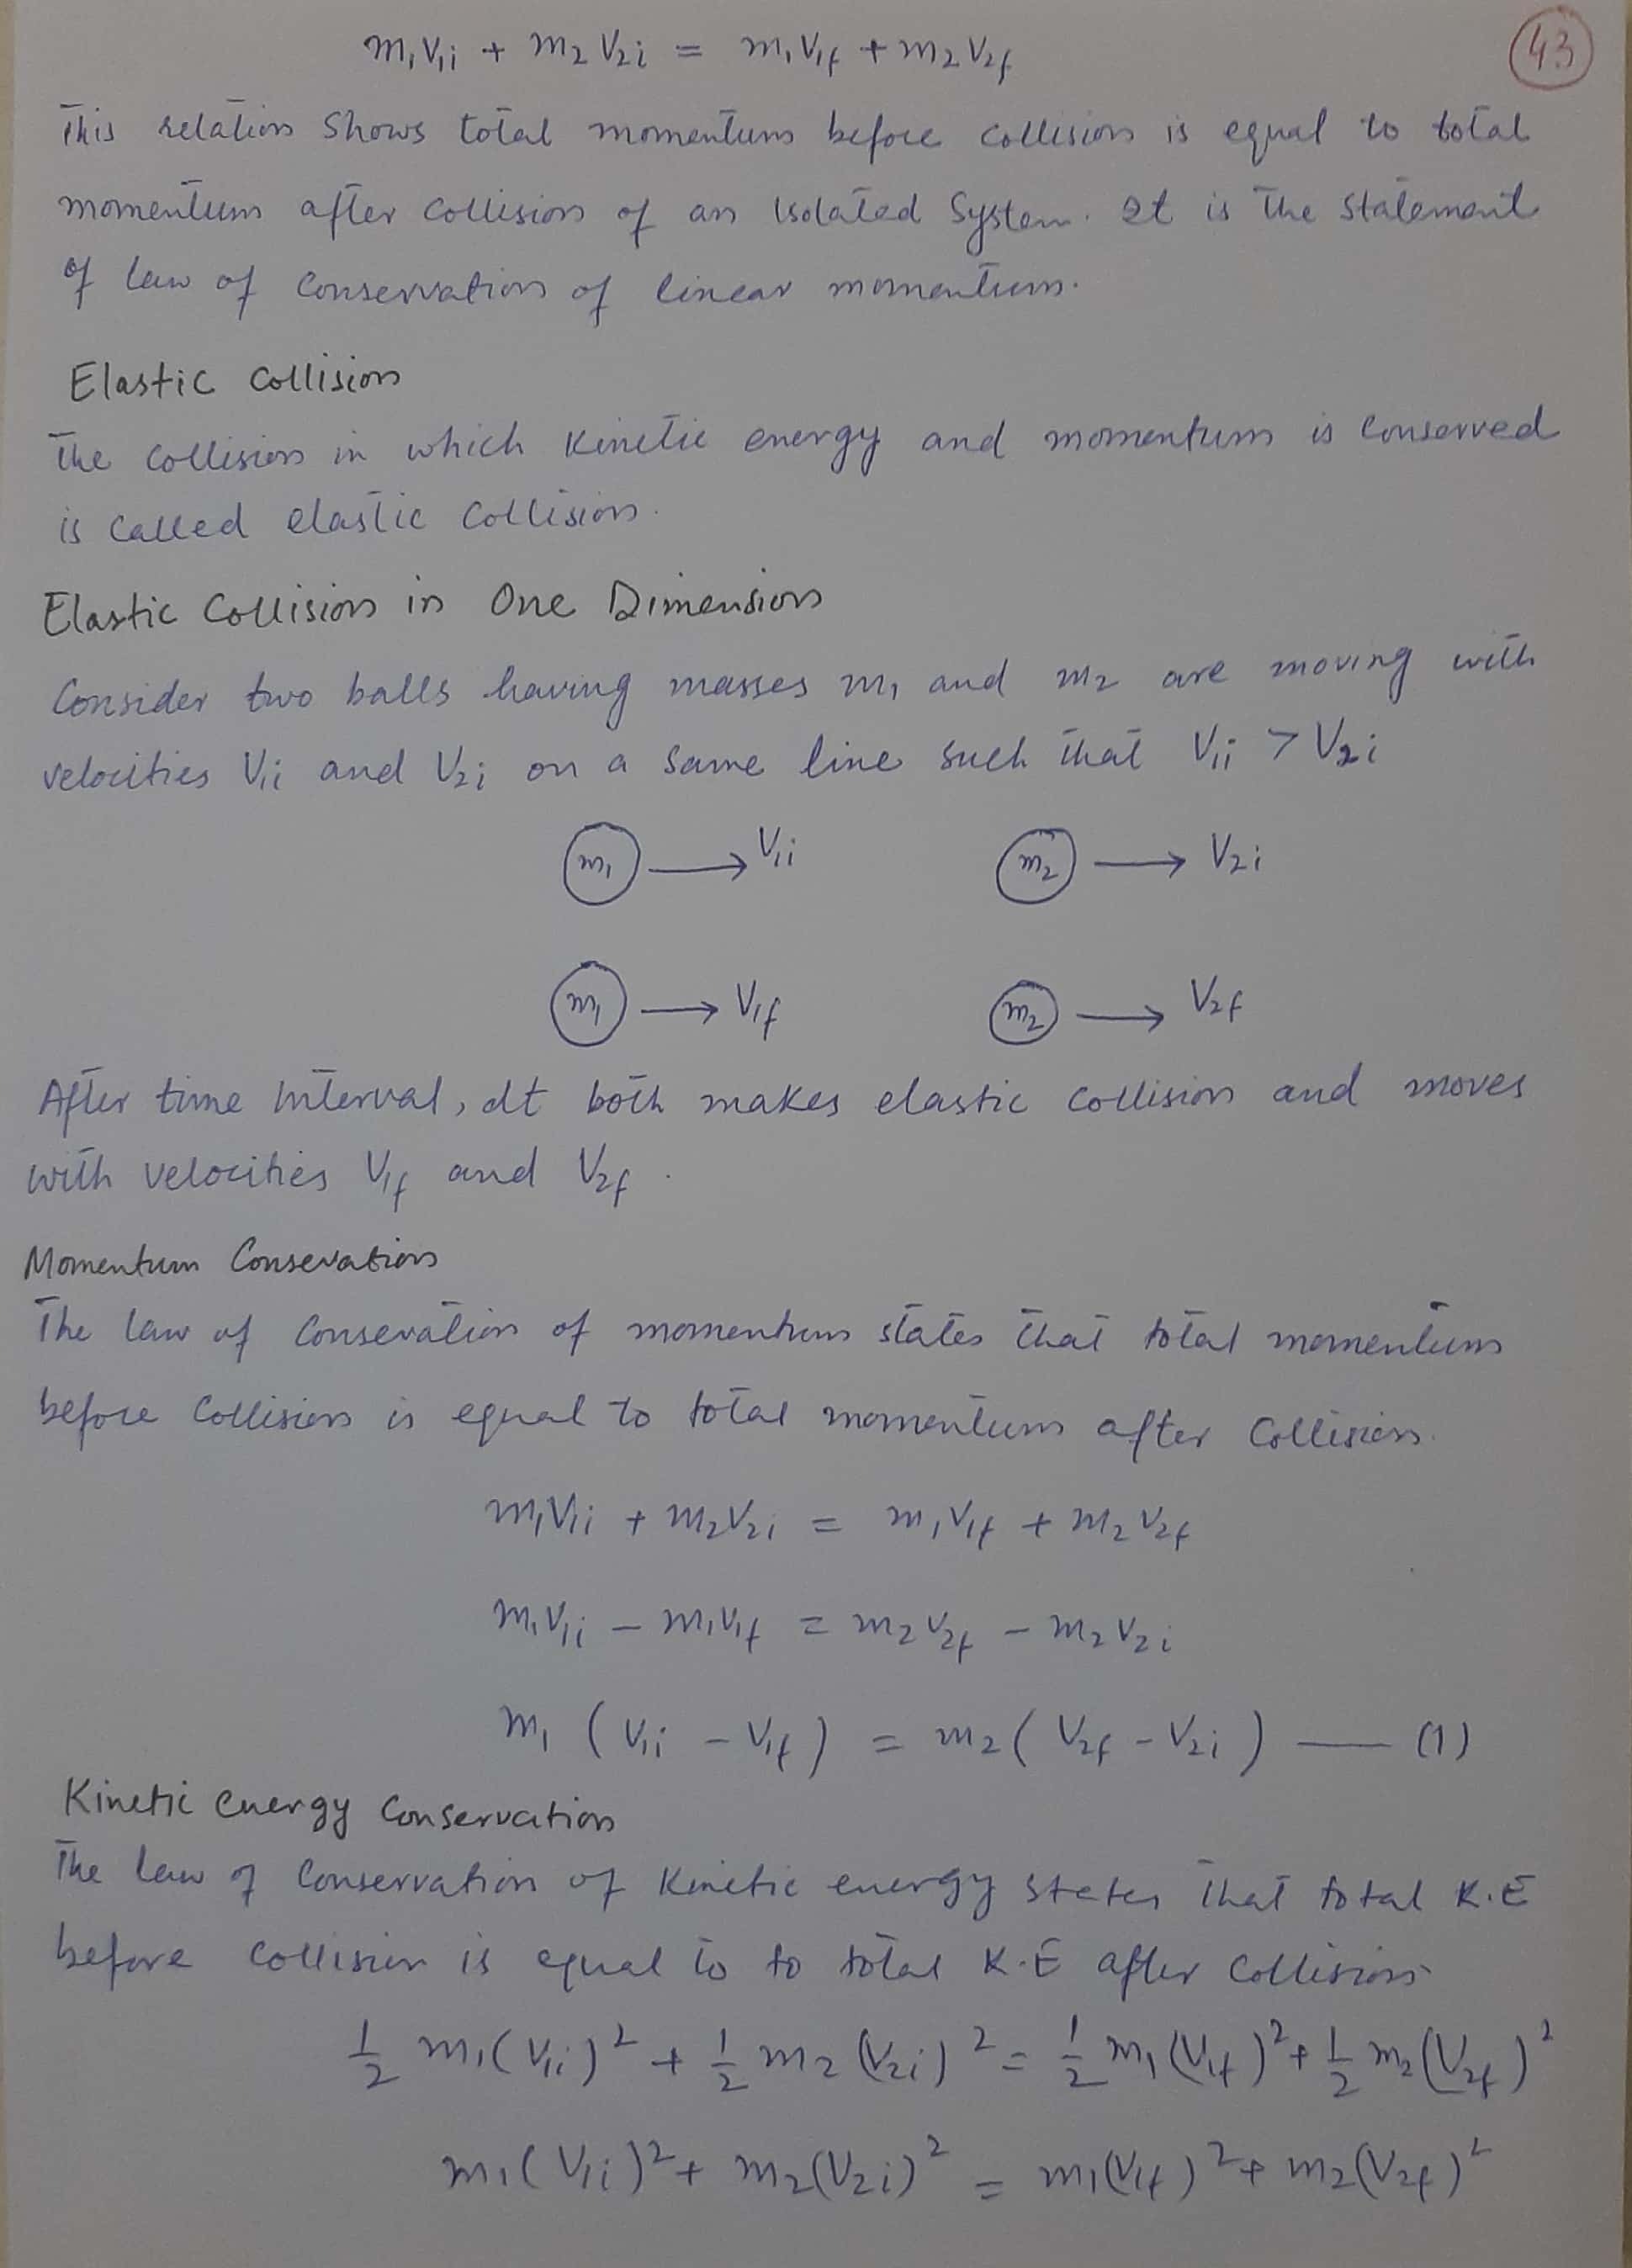 m₁V₁i + m₂V₂i = m₁V₁f + m₂V₂f
43
This relation Shows total momentum before collision is equal to total
momentum after collision of an isolated System. It is the statement
of law of conservation of linear momentum.
Elastic Collision
The collision in which kinetic energy and momentum is conserved
is called elastic collision.
Elastic Collision in One Dimension
Consider two balls having masses m₁ and m₂ are moving with
velocities V₁i and V₂i on a same line such that V₁i > V₂i
m₁ → V₁i m₂ → V₂i
m₁ → V₁f m₂ → V₂f
After time interval, dt both makes elastic collision and moves
with velocities V₁f and V₂f.
Momentum Consevation
The law of Consevation of momentum states that total momentum
before collision is equal to total momentum after collision.
m₁V₁i + m₂V₂i = m₁V₁f + m₂V₂f
m₁V₁i − m₁V₁f = m₂V₂f − m₂V₂i
m₁ (V₁i − V₁f) = m₂ (V₂f − V₂i) — (1)
Kinetic energy Conservation
The law of Conservation of Kinetic energy states that total K.E
before collision is equal to to total K.E after collision
½ m₁(V₁i)² + ½ m₂(V₂i)² = ½ m₁(V₁f)² + ½ m₂(V₂f)²
m₁(V₁i)² + m₂(V₂i)² = m₁(V₁f)² + m₂(V₂f)²